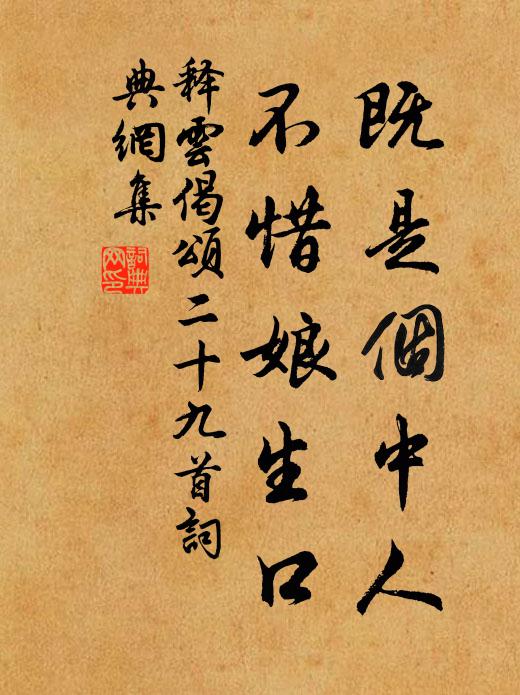 既是個中人
不惜娘生口
释雲偈頌二十九首詞
典網集
詞典
网印